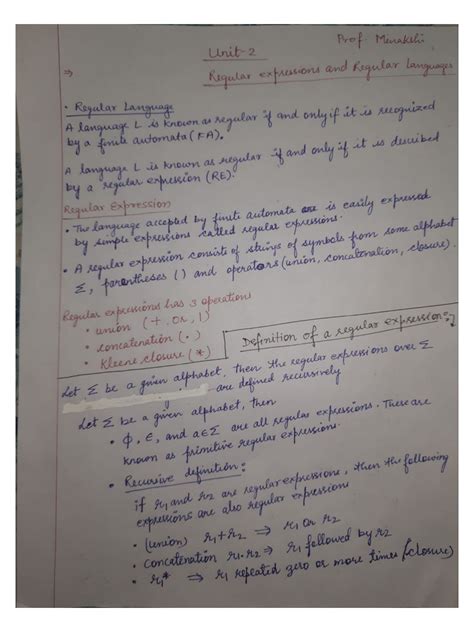 Prof Minakshi
Unit-2
⇒ Regular expressions and Regular Languages
• Regular Language
A language L is known as regular if and only if it is recognized
by a finite automata (FA).
A language L is known as regular if and only if it is described
by a regular expression (RE).
Regular Expression
• The language accepted by finite automata are is easily expressed
by simple expressions called regular expressions.
• A regular expression consists of strings of symbols from some alphabet
Σ, parentheses () and operators (union, concatenation, closure).
Regular expressions has 3 operations
• union (+, or, |)
• concatenation (•)
• Kleene closure (*)
Definition of a regular expression:
Let Σ be a given alphabet, then the regular expressions over Σ
are defined recursively
Let Σ be a given alphabet, then
• ϕ, ε, and a∈Σ are all regular expressions. These are
known as primitive regular expressions.
• Recursive definition:
if r1 and r2 are regular expressions, then the following
expressions are also regular expressions
• (union) r1+r2 ⇒ r1 or r2
• concatenation r1.r2 ⇒ r1 followed by r2
• r1* ⇒ r1 repeated zero or more times (closure)